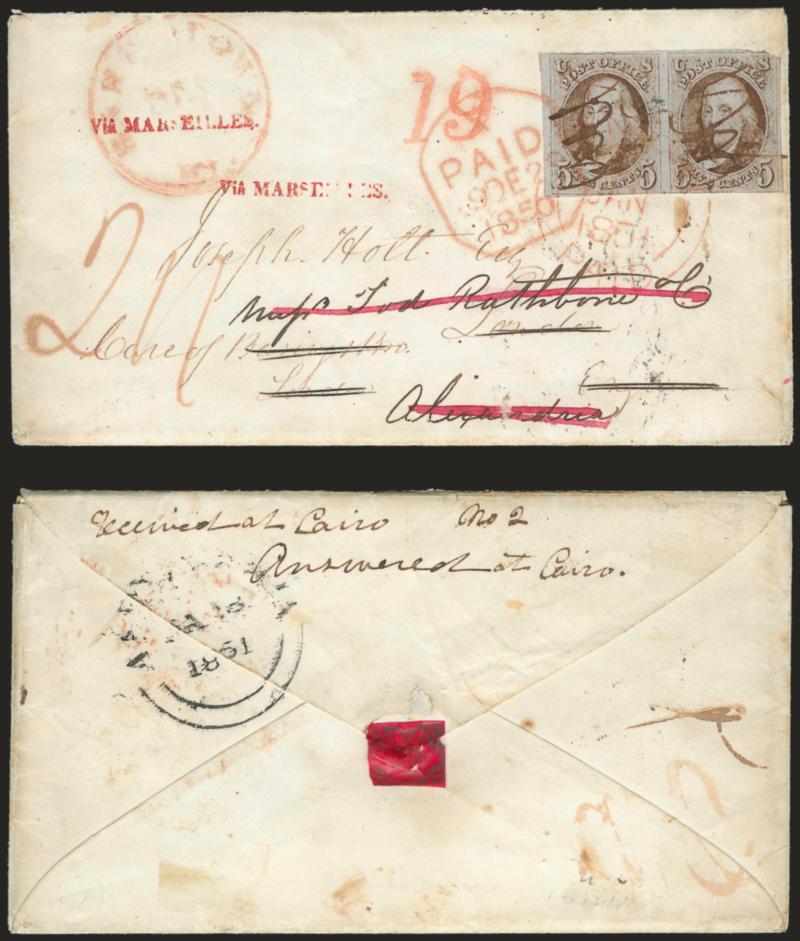 Via MARSEILLES.
19
PAID
29 DE 29
1850
U S
POST OFFICE
5 FIVE CENTS 5
U S
POST OFFICE
5 FIVE CENTS 5
JAN
1851
PAID
Via MARSEILLES.
Joseph Holt. Esq
Messrs Tod Rathbone & Co
London
Care of Baring Bro.
Alexandria
Received at Cairo No 2
Answered at Cairo.
1851